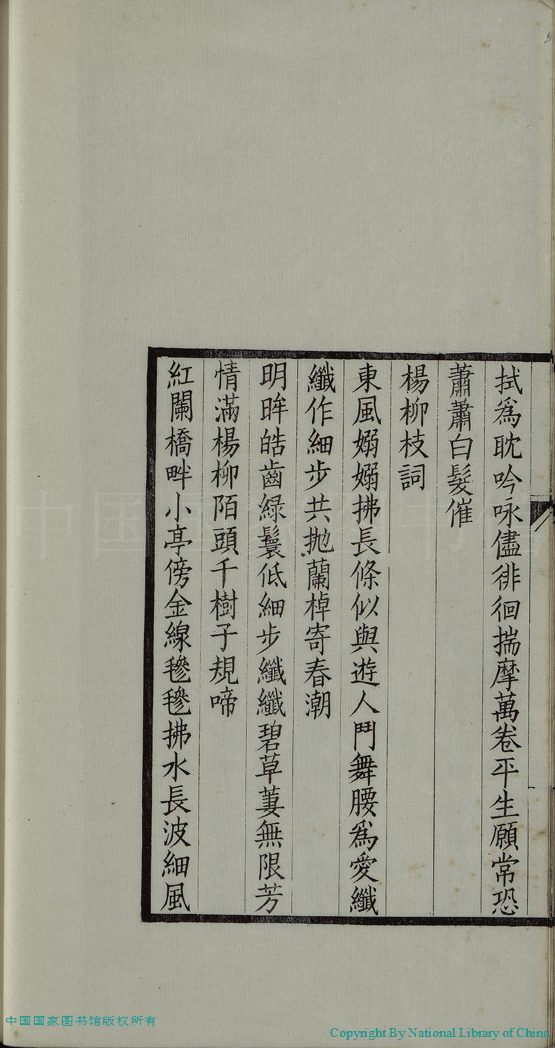 拭爲耽吟咏儘徘徊揣摩萬卷平生願常恐
蕭蕭白髮催
楊柳枝詞
東風嫋嫋拂長條似與遊人鬥舞腰爲愛纖
纖作細步共抛蘭棹寄春潮
明眸皓齒綠鬟低細步纖纖碧草萋無限芳
情滿楊柳陌頭千樹子規啼
紅闌橋畔小亭傍金線毿毿拂水長波細風
中国国家图书馆版权所有
Copyright By National Library of China